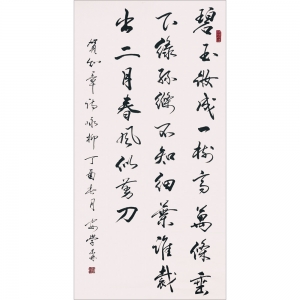 碧玉妝成一樹高萬條垂
下綠絲縧不知細葉誰裁
出二月春風似剪刀
賀知章詩詠柳丁酉春月